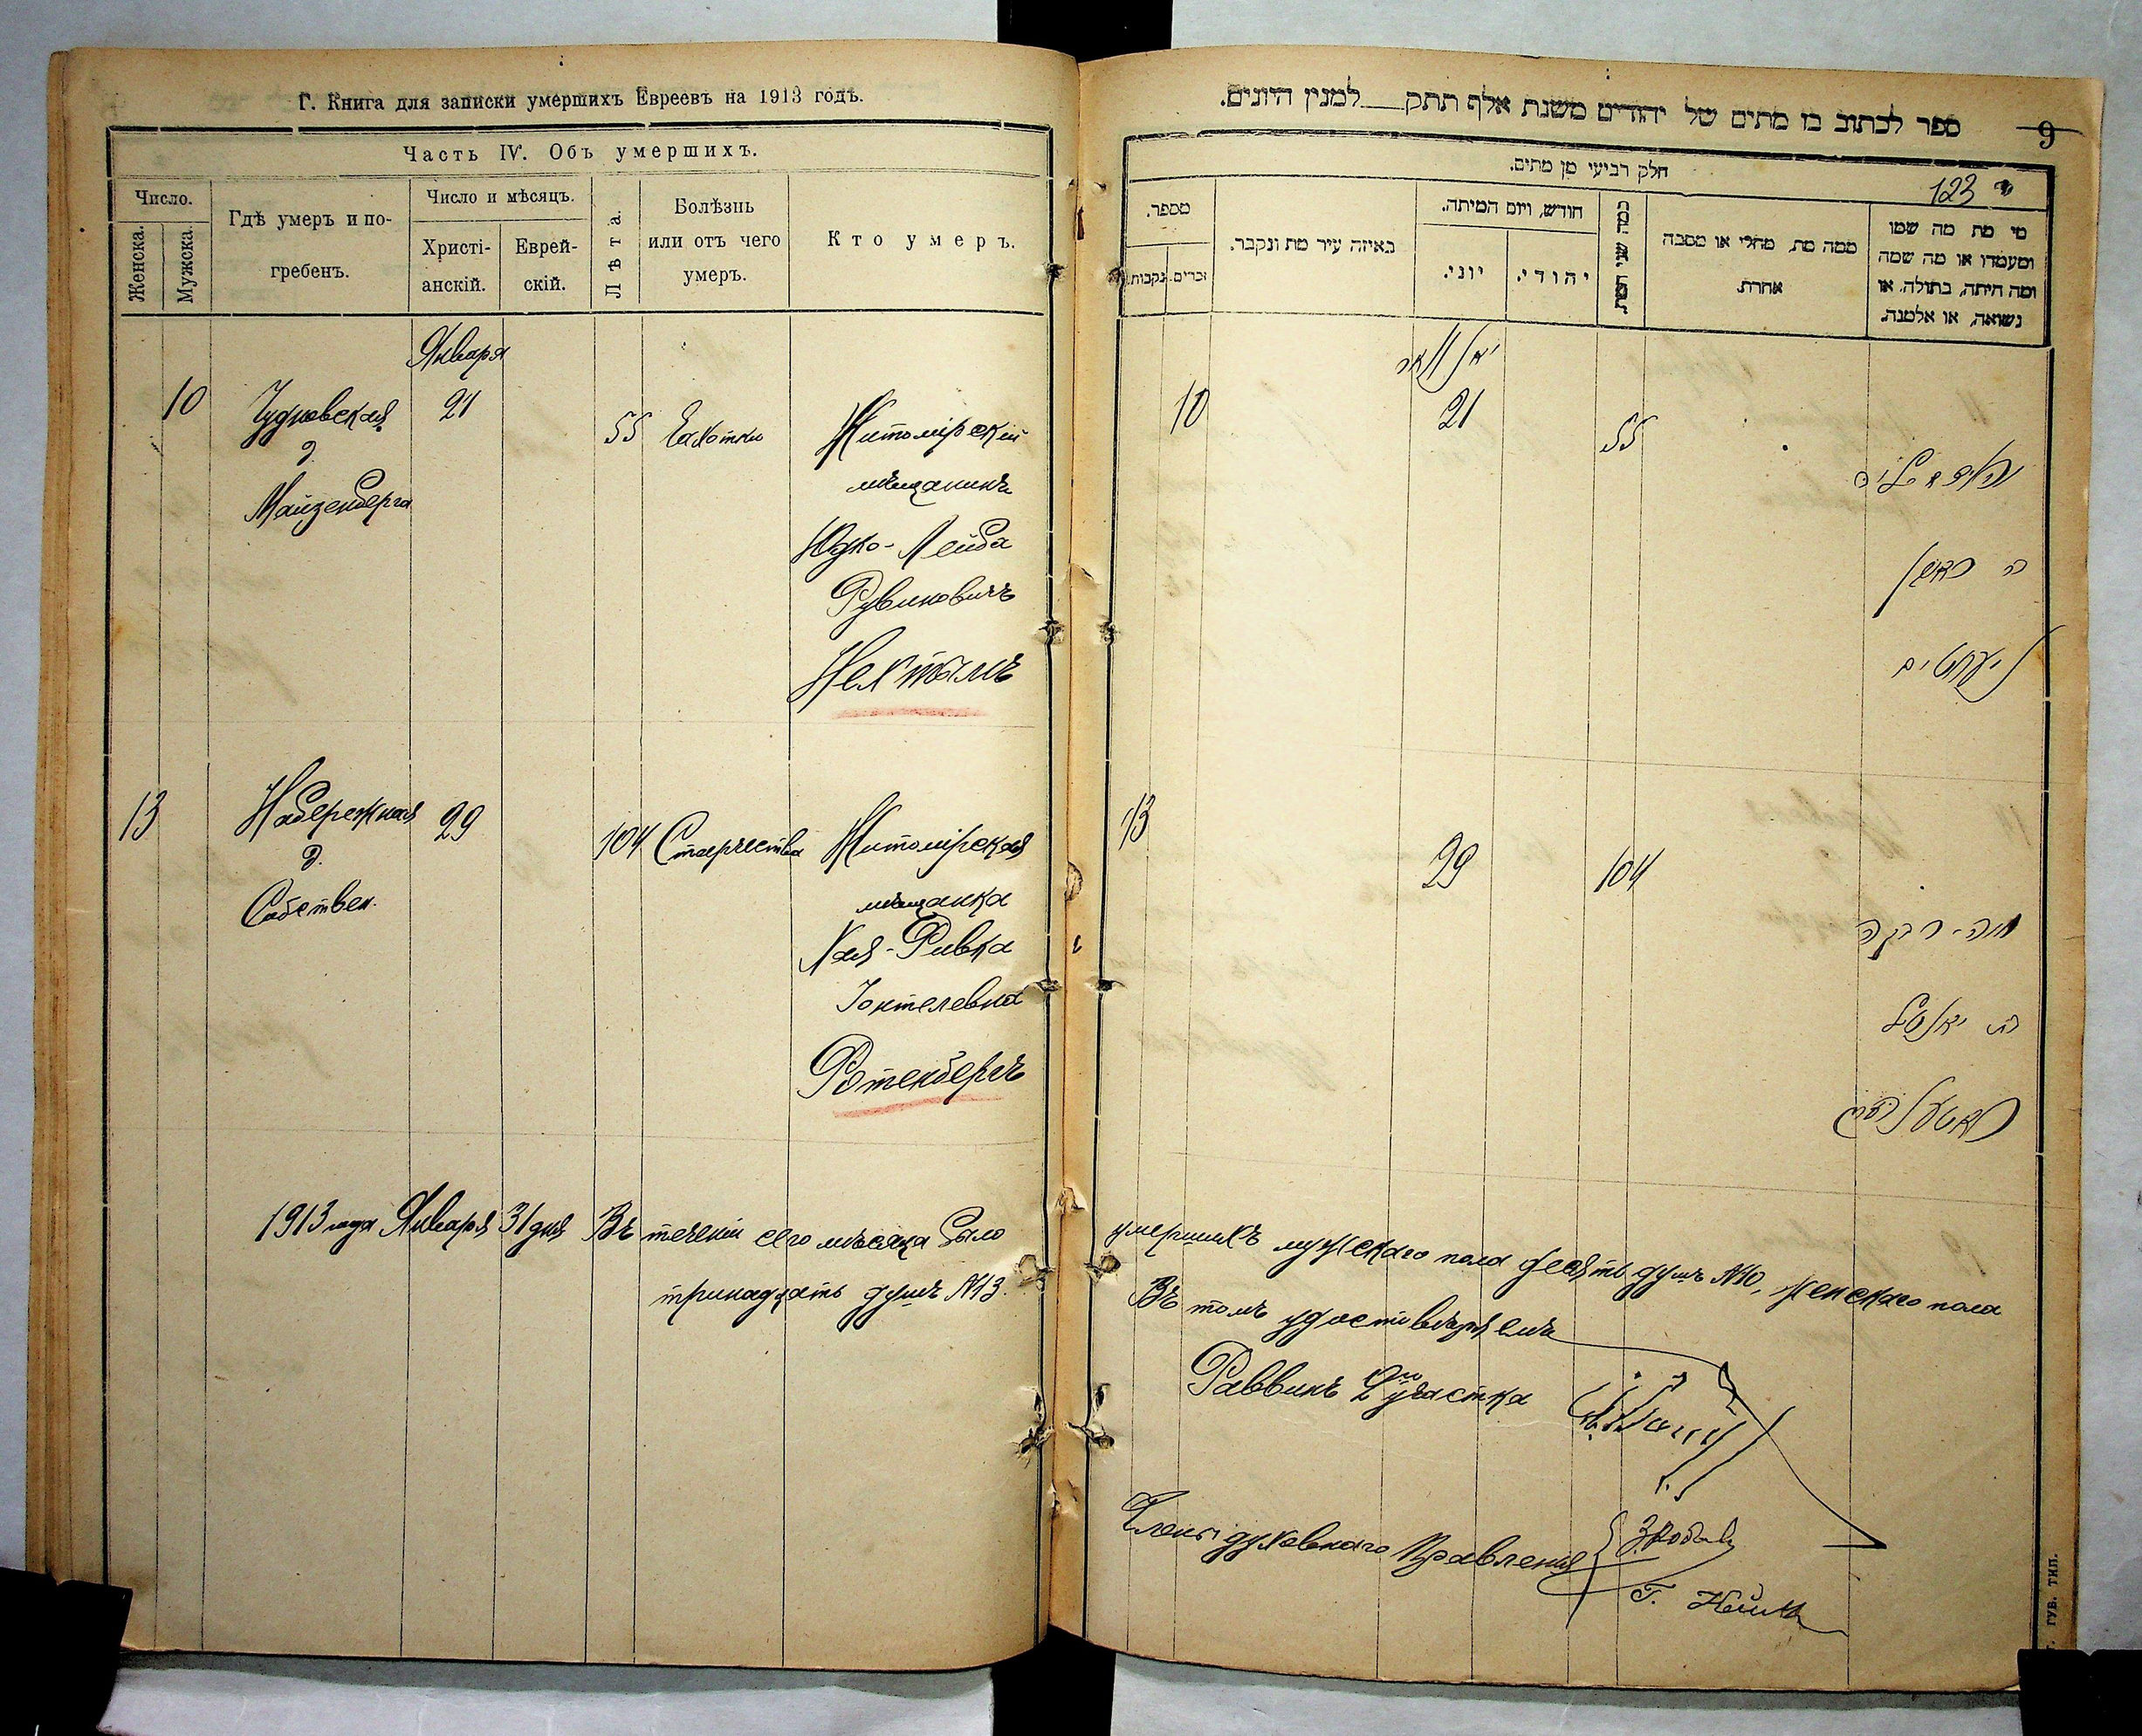 Г. Книга для записки умершихъ Евреевъ на 1913 годъ.
Часть IV. Объ умершихъ.
Число.
Женска.
Мужска.
Гдѣ умеръ и по-
гребенъ.
Число и мѣсяцъ.
Христі-
анскій.
Еврей-
скій.
Лѣта.
Болѣзнь
или отъ чего
умеръ.
Кто умеръ.
Января
10
Чудновская
д.
Майзенберга
21
55
Чахотки
Житомірскій
мѣщанинъ
Юдко-Лейба
Рувиновичъ
13
Набережная
д.
Собствен.
29
104
Старчества
Житомірская
мѣщанка
Хая-Ривка
Ротенбергъ
1913 года Января 31 дня Въ теченіи сего мѣсяца было
тринадцать душъ №13.
ספר לכתוב בו מתים של יהודים משנת אלף תתק למנין היונים.
9
חלק רביעי מן מתים.
123
מספר.
זכרים.
נקבות.
באיזה עיר מת ונקבר.
חודש, ויום המיתה.
יוני.
יהודי.
כמה שני המת
ממה מת, מחלי או מסבה
אחרת.
מי מת מה שמו
ומעמדו או מה שמה
ומה היתה, בתולה, או
נשואה, או אלמנה.
יאנואר
10
21
55
13
29
104
חיה-רבקה
умершихъ мужскаго пола десять душъ №10, женскаго пола
Въ томъ удостовѣряемъ
Раввинъ 2го участка
Члены духовнаго Правленія
Г.
ГУБ. ТИП.